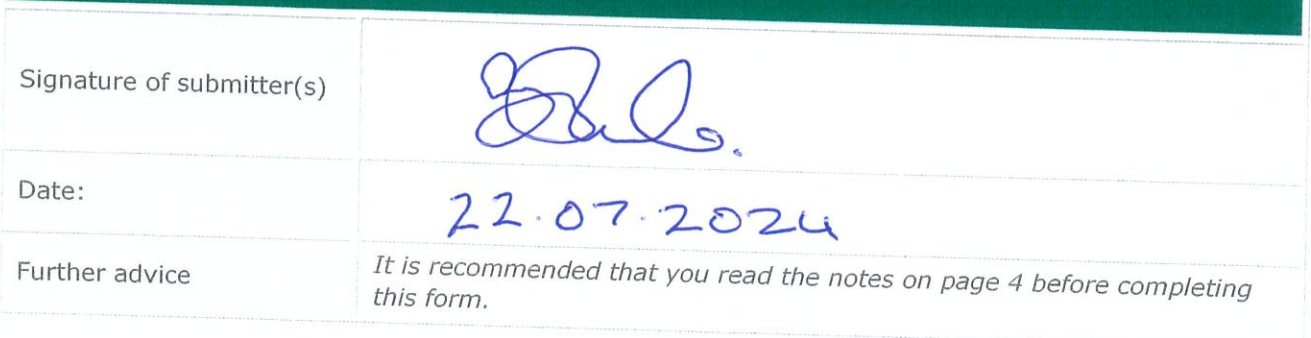 Signature of submitter(s)
Date:
22.07.2024
Further advice
It is recommended that you read the notes on page 4 before completing
this form.